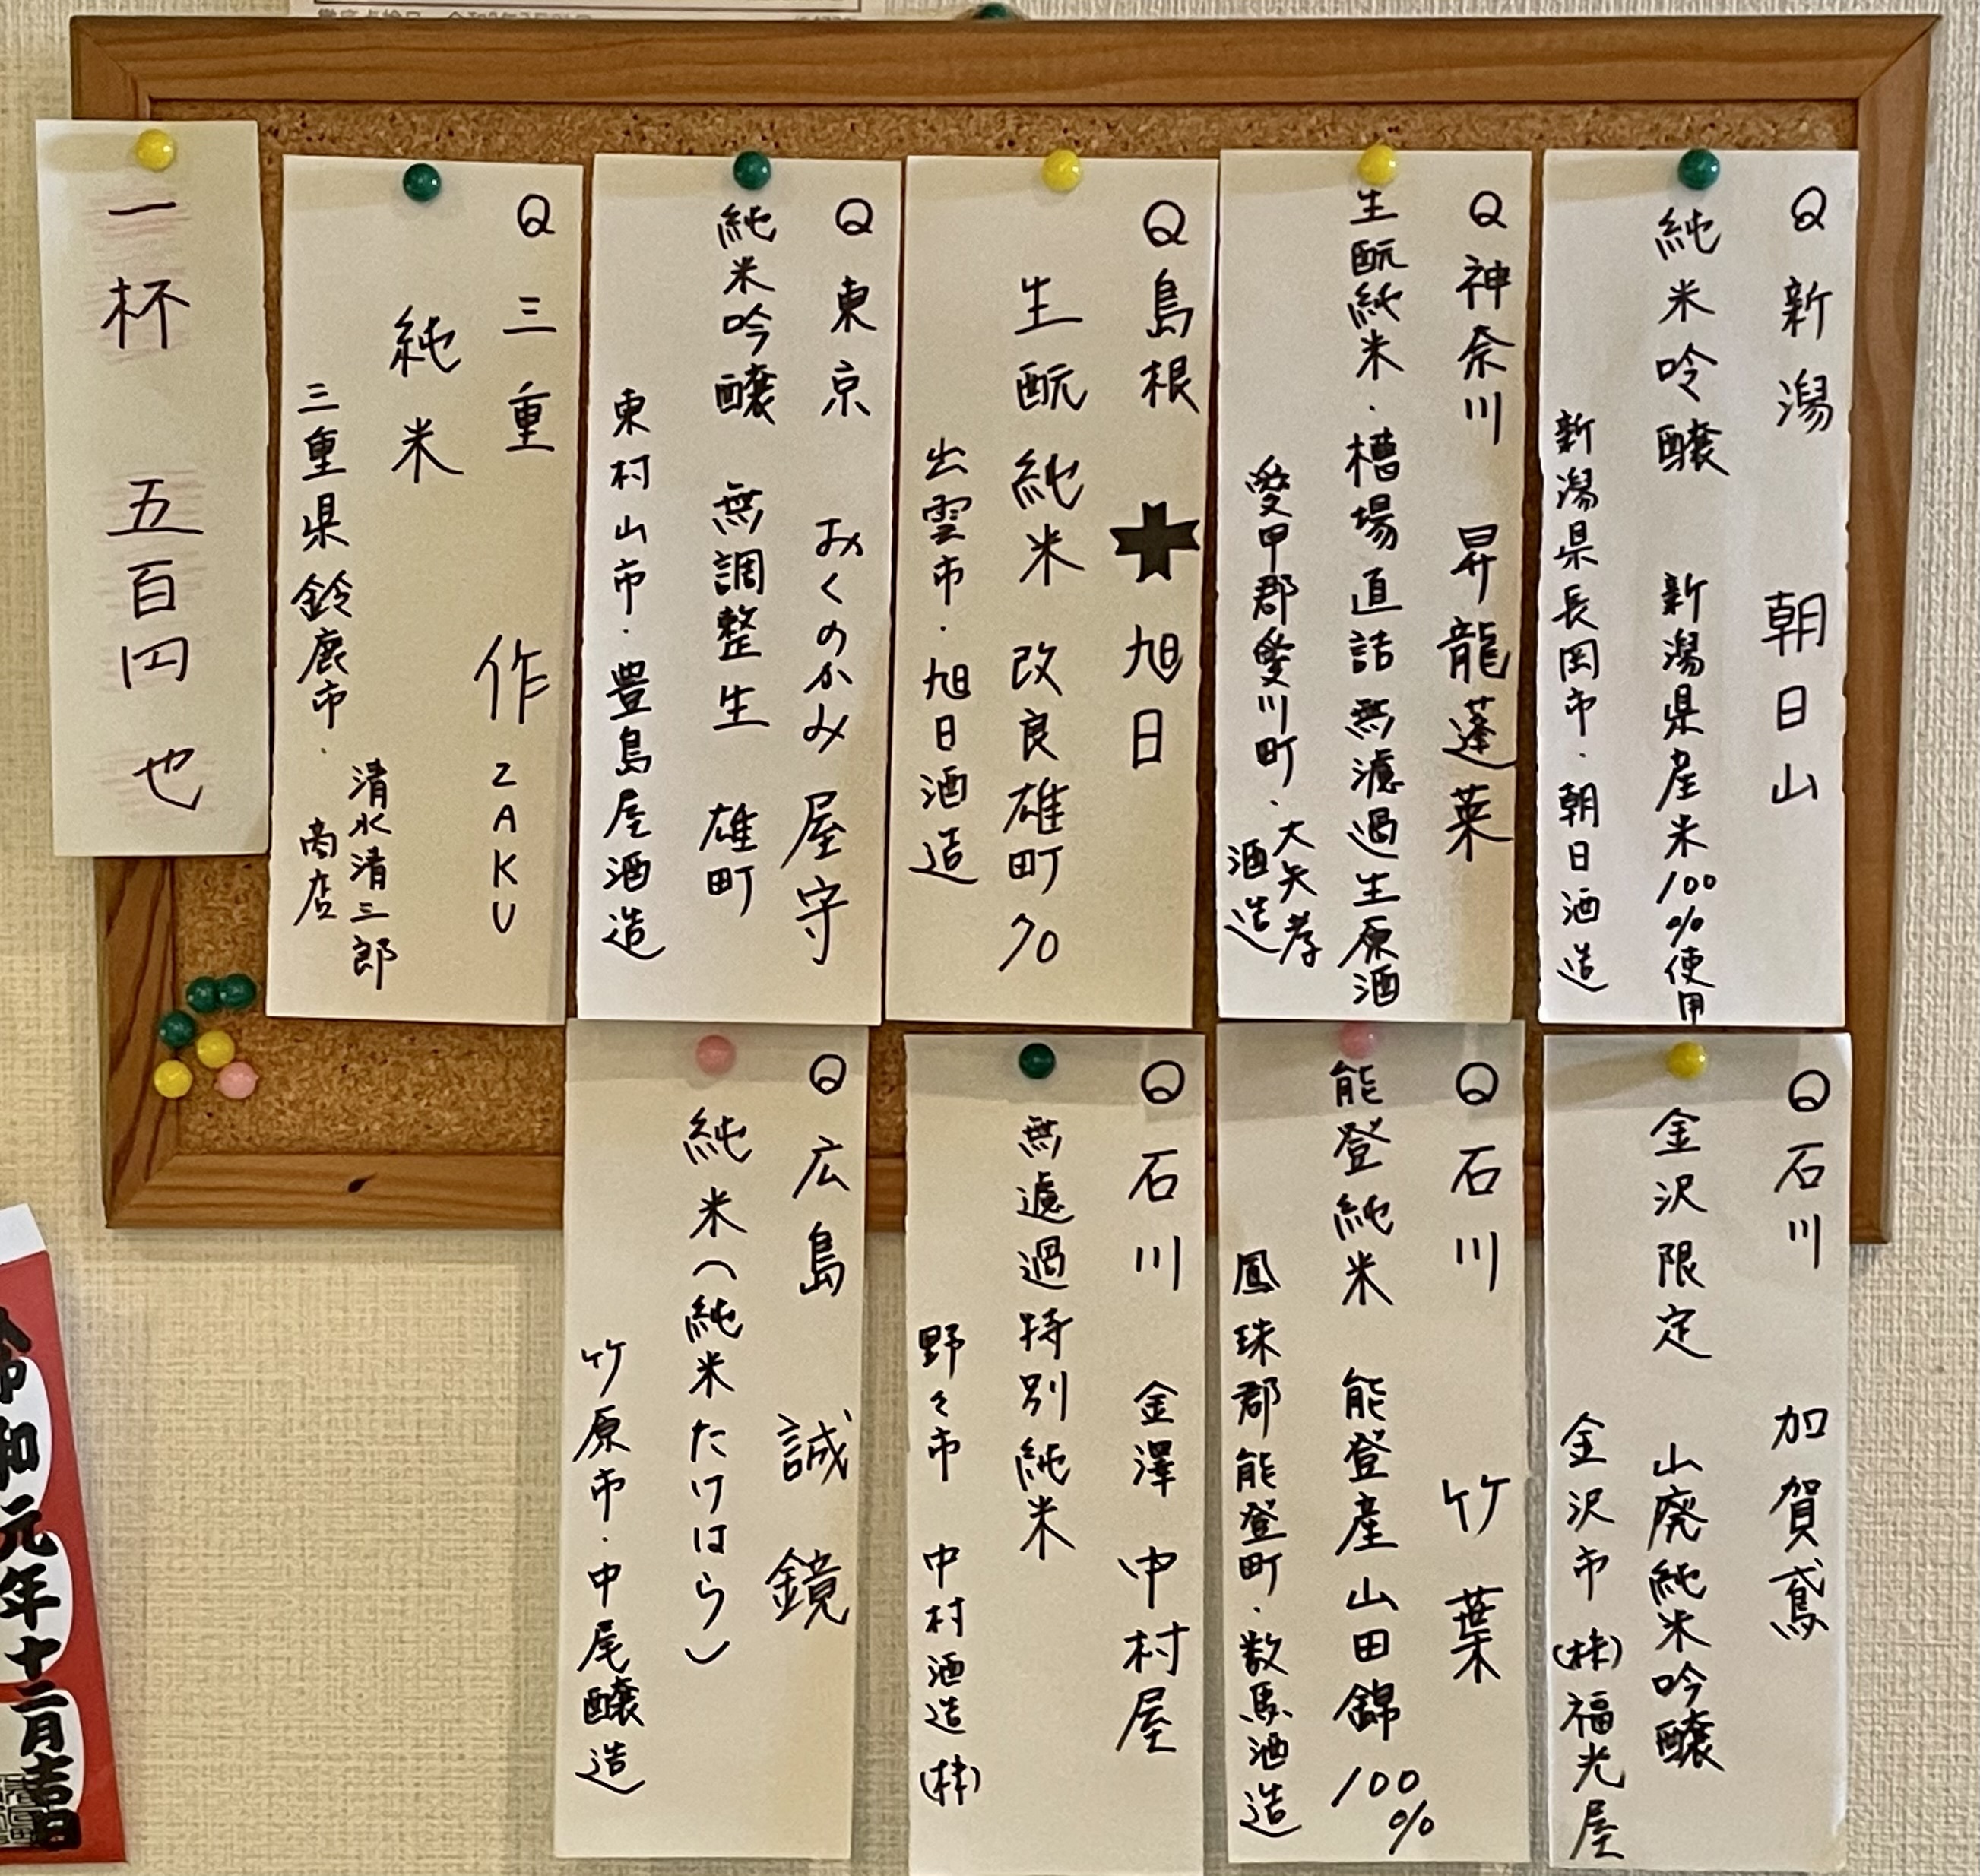 新潟 朝日山
純米吟醸 新潟県産米100%使用
新潟県長岡市・朝日酒造
神奈川 昇龍蓬莱
生酛純米・槽場直詰無濾過生原酒
愛甲郡愛川町・大矢孝
酒造
島根 旭日
生酛純米 改良雄町70
出雲市・旭日酒造
東京 おくのかみ 屋守
純米吟醸 無調整生 雄町
東村山市・豊島屋酒造
三重 作 ZAKU
純米
三重県鈴鹿市・清水清三郎
商店
一杯 五百円也
石川 加賀鳶
金沢限定 山廃純米吟醸
金沢市(株)福光屋
石川 竹葉
能登純米 能登産山田錦100%
鳳珠郡能登町・数馬酒造
石川 金澤中村屋
無濾過特別純米
野々市 中村酒造(株)
広島 誠鏡
純米(純米たけはら)
竹原市・中尾醸造
令和元年十二月吉日